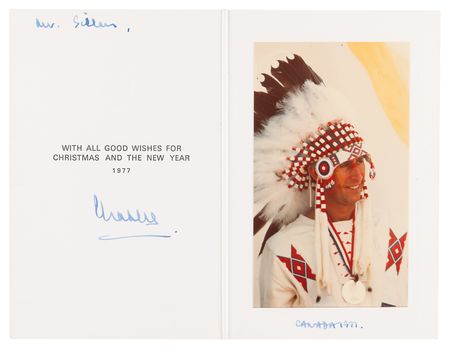 Mr.
WITH ALL GOOD WISHES FOR
CHRISTMAS AND THE NEW YEAR
1977
Charles
CANADA 1977.